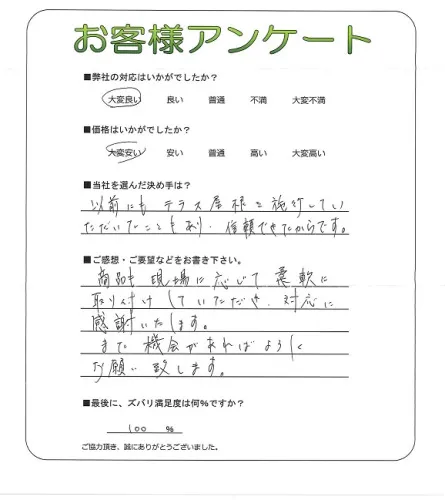 お客様アンケート
■弊社の対応はいかがでしたか?
大変良い 良い 普通 不満 大変不満
■価格はいかがでしたか?
大変安い 安い 普通 高い 大変高い
■当社を選んだ決め手は?
以前にも テラス屋根を施行してい
ただいたこともあり、信頼できたからです。
■ご感想・ご要望などをお書き下さい。
商品も現場に応じて柔軟に
取り付けしていただき、対応に
感謝いたします。
また機会があればよろしく
お願い致します。
■最後に、ズバリ満足度は何%ですか?
100 %
ご協力頂き、誠にありがとうございました。